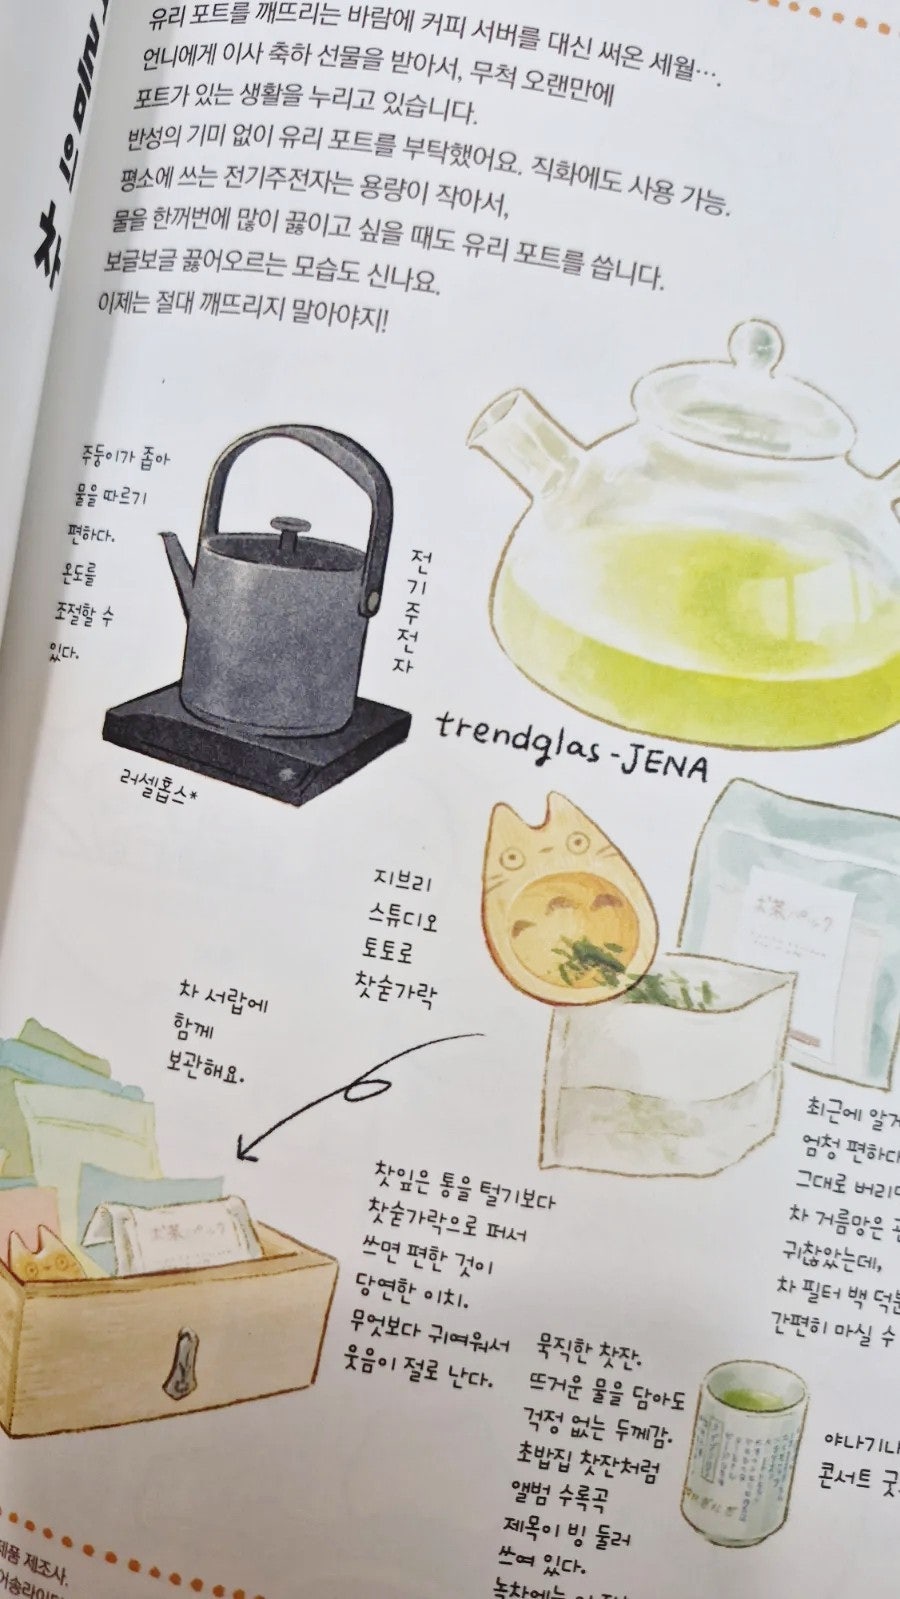 유리 포트를 깨뜨리는 바람에 커피 서버를 대신 써온 세월….
언니에게 이사 축하 선물을 받아서, 무척 오랜만에
포트가 있는 생활을 누리고 있습니다.
반성의 기미 없이 유리 포트를 부탁했어요. 직화에도 사용 가능.
평소에 쓰는 전기주전자는 용량이 작아서,
물을 한꺼번에 많이 끓이고 싶을 때도 유리 포트를 씁니다.
보글보글 끓어오르는 모습도 신나요.
이제는 절대 깨뜨리지 말아야지!
주둥이가 좁아
물을 따르기
편하다.
온도를
조절할 수
있다.
전기주전자
러셀홉스*
trendglas-JENA
지브리
스튜디오
토토로
찻숟가락
お茶パック
차 서랍에
함께
보관해요.
お茶パック
찻잎은 통을 털기보다
찻숟가락으로 퍼서
쓰면 편한 것이
당연한 이치.
무엇보다 귀여워서
웃음이 절로 난다.
최근에
엄청 편하다
그대로
차 거름망은
귀찮았는데,
차 필터 백
간편히 마실 수
묵직한 찻잔.
뜨거운 물을 담아도
걱정 없는 두께감.
초밥집 찻잔처럼
앨범 수록곡
제목이 빙 둘러
쓰여 있다.
녹차에는
야나기나
콘서트
제품 제조사.